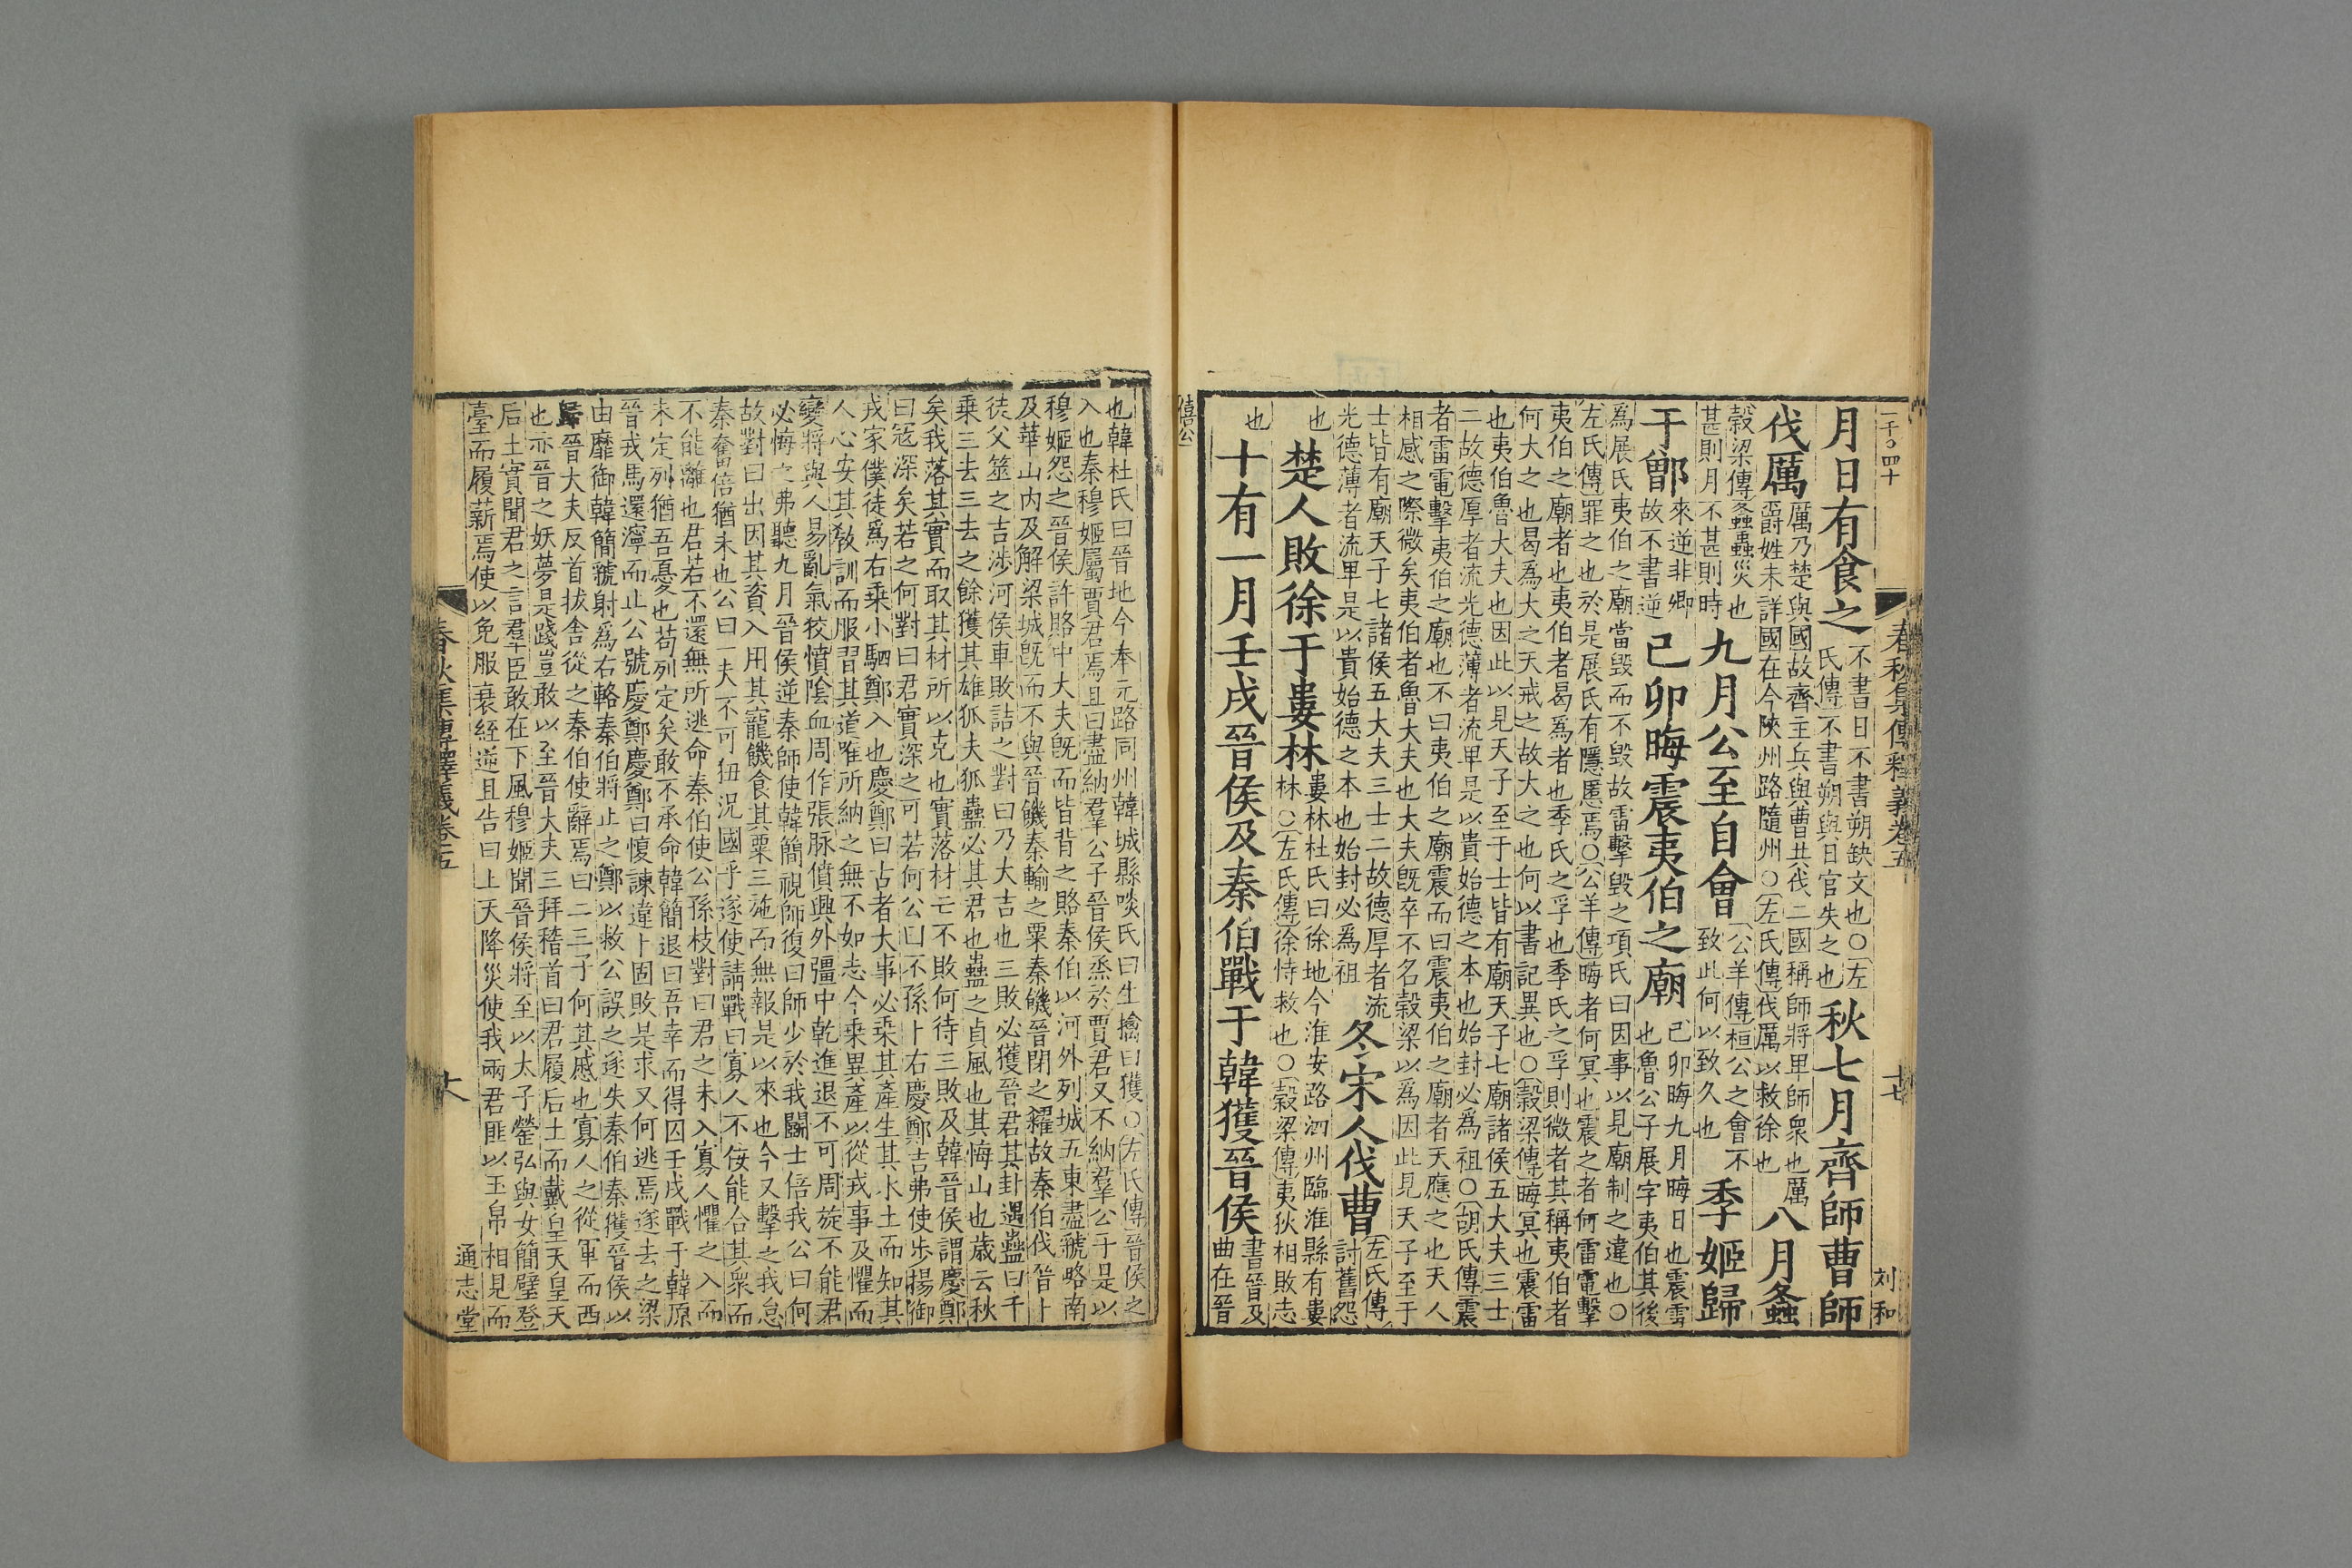 一千〇四十
春秋集傳釋義卷五
十七
刘和
月日有食之不書日不書朔缺文也〇左
氏傳不書朔與日官失之也秋七月齊師曹師
伐厲厲乃楚與國故齊主兵與曹共伐二國稱師將卑師衆也厲
爵姓未詳國在今陜州路隨州〇左氏傳伐厲以救徐也八月螽
穀梁傳螽蟲災也
甚則月不甚則時九月公至自會公羊傳桓公之會不
致此何以致久也季姬歸
于鄫來逆非卿
故不書逆己卯晦震夷伯之廟己卯晦九月晦日也震雷
也魯公子展字夷伯其後
爲展氏夷伯之廟當毀而不毀故雷擊毀之項氏曰因事以見廟制之違也〇
左氏傳罪之也於是展氏有隱慝焉〇公羊傳晦者何冥也震之者何雷電擊
夷伯之廟者也夷伯者曷爲者也季氏之孚也季氏之孚則微者其稱夷伯者
何大之也曷爲大之天戒之故大之也何以書記異也〇穀梁傳晦冥也震雷
也夷伯魯大夫也因此以見天子至于士皆有廟天子七廟諸侯五大夫三士
二故德厚者流光德薄者流卑是以貴始德之本也始封必爲祖〇胡氏傳震
者雷電擊夷伯之廟也不曰夷伯之廟震而曰震夷伯之廟者天應之也天人
相感之際微矣夷伯者魯大夫也大夫既卒不名穀梁以爲因此見天子至于
士皆有廟天子七諸侯五大夫三士二故德厚者流
光德薄者流卑是以貴始德之本也始封必爲祖冬宋人伐曹左氏傳
討舊怨
也楚人敗徐于婁林婁林杜氏曰徐地今淮安路泗州臨淮縣有婁
林〇左氏傳徐恃救也〇穀梁傳夷狄相敗志
也十有一月壬戌晉侯及秦伯戰于韓獲晉侯書晉及
曲在晉
僖公
也韓杜氏曰晉地今奉元路同州韓城縣啖氏曰生擒曰獲〇左氏傳晉侯之
入也秦穆姬屬賈君焉且曰盡納羣公子晉侯烝於賈君又不納羣公子是以
穆姬怨之晉侯許賂中大夫既而皆背之賂秦伯以河外列城五東盡虢略南
及華山内及解梁城既而不與晉饑秦輸之粟秦饑晉閉之糴故秦伯伐晉卜
徒父筮之吉涉河侯車敗詰之對曰乃大吉也三敗必獲晉君其卦遇蠱曰千
乗三去三去之餘獲其雄狐夫狐蠱必其君也蠱之貞風也其悔山也歳云秋
矣我落其實而取其材所以克也實落材亡不敗何待三敗及韓晉侯謂慶鄭
曰冦深矣若之何對曰君實深之可若何公曰不孫卜右慶鄭吉弗使步揚御
戎家僕徒爲右乗小駟鄭入也慶鄭曰古者大事必乗其產生其水土而知其
人心安其敎訓而服習其道唯所納之無不如志今乗異產以從戎事及懼而
變將與人易亂氣狡憤陰血周作張脉僨興外彊中乾進退不可周旋不能君
必悔之弗聽九月晉侯逆秦師使韓簡視師復曰師少於我闘士倍我公曰何
故對曰出因其資入用其寵饑食其粟三施而無報是以來也今又擊之我怠
秦奮倍猶未也公曰一夫不可狃況國乎遂使請戰曰寡人不佞能合其衆而
不能離也君若不還無所逃命秦伯使公孫枝對曰君之未入寡人懼之入而
未定列猶吾憂也苟列定矣敢不承命韓簡退曰吾幸而得囚壬戌戰于韓原
晉戎馬還濘而止公號慶鄭慶鄭曰愎諫違卜固敗是求又何逃焉遂去之梁
由靡御韓簡虢射爲右輅秦伯將止之鄭以救公誤之遂失秦伯秦獲晉侯以
歸晉大夫反首拔舎從之秦伯使辭焉曰二三子何其慼也寡人之從軍而西
也亦晉之妖夢是踐豈敢以至晉大夫三拜稽首曰君履后土而戴皇天皇天
后土實聞君之言羣臣敢在下風穆姬聞晉侯將至以太子罃弘與女簡璧登
臺而履薪焉使以免服衰絰逆且告曰上天降災使我兩君匪以玉帛相見而
春秋集傳釋義卷五
通志堂